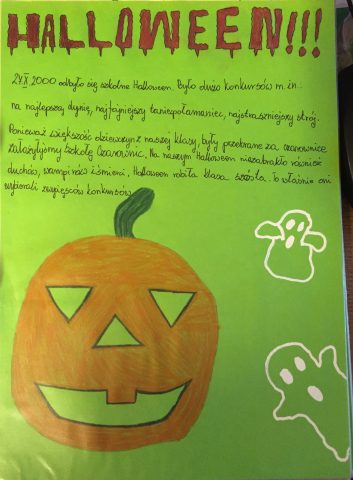 HALLOWEEN!!!
24 X 2000 odbyło się szkolne Halloween. Było dużo konkursów m.in.:
na najlepszą dynię, najfajniejszy taniec połamaniec, najstraszniejszy strój.
Ponieważ większość dziewczyn z naszej klasy, były przebrane za czarownice
założyłyśmy Szkołę Czarownic. Na naszym Halloween niezabrakło również
duchów, wampirów i śmierci, Halloween robiła klasa szósta. To właśnie oni
wybierali zwycięsców konkursów.